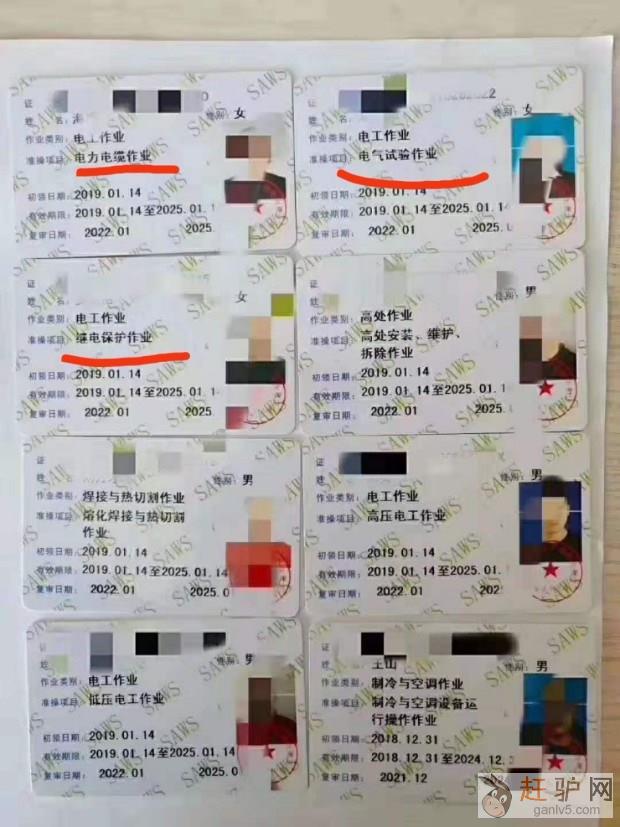 证
姓名: 性别: 女
作业类别: 电工作业
准操项目: 电力电缆作业
初领日期: 2019.01.14
有效期限: 2019.01.14至2025.01.1
复审日期: 2022.01 2025.
证
性别: 女
作业类别: 电工作业
准操项目: 电气试验作业
初领日期: 2019.01.14
有效期限: 2019.01.14至2025.01.14
复审日期: 2022.01 2025.0
姓 女
作业类别: 电工作业
准操项目: 继电保护作业
初领日期: 2019.01.14
有效期限: 2019.01.14至2025.01.1
复审日期: 2022.01 2025.
姓名 性别: 男
作业类别: 高处作业
准操项目: 高处安装、维护、
拆除作业
初领日期: 2019.01.14
有效期限: 2019.01.14至2025.01.
复审日期: 2022.01 2025.
证
性别: 男
作业类别: 焊接与热切割作业
准操项目: 熔化焊接与热切割
作业
初领日期: 2019.01.14
有效期限: 2019.01.14至2025.01.14
复审日期: 2022.01 2025.0
证
性别: 男
作业类别: 电工作业
准操项目: 高压电工作业
初领日期: 2019.01.14
有效期限: 2019.01.14至2025.01.
复审日期: 2022.01 2025.
姓 性别: 男
作业类别: 电工作业
准操项目: 低压电工作业
初领日期: 2019.01.14
有效期限: 2019.01.14至2025.01.14
复审日期: 2022.01 2025.0
证
姓名 王山 性别: 男
作业类别: 制冷与空调作业
准操项目: 制冷与空调设备运
行操作作业
初领日期: 2018.12.31
有效期限: 2018.12.31至2024.12.
复审日期: 2021.12 202
SAWS
赶驴网
ganlv5.com